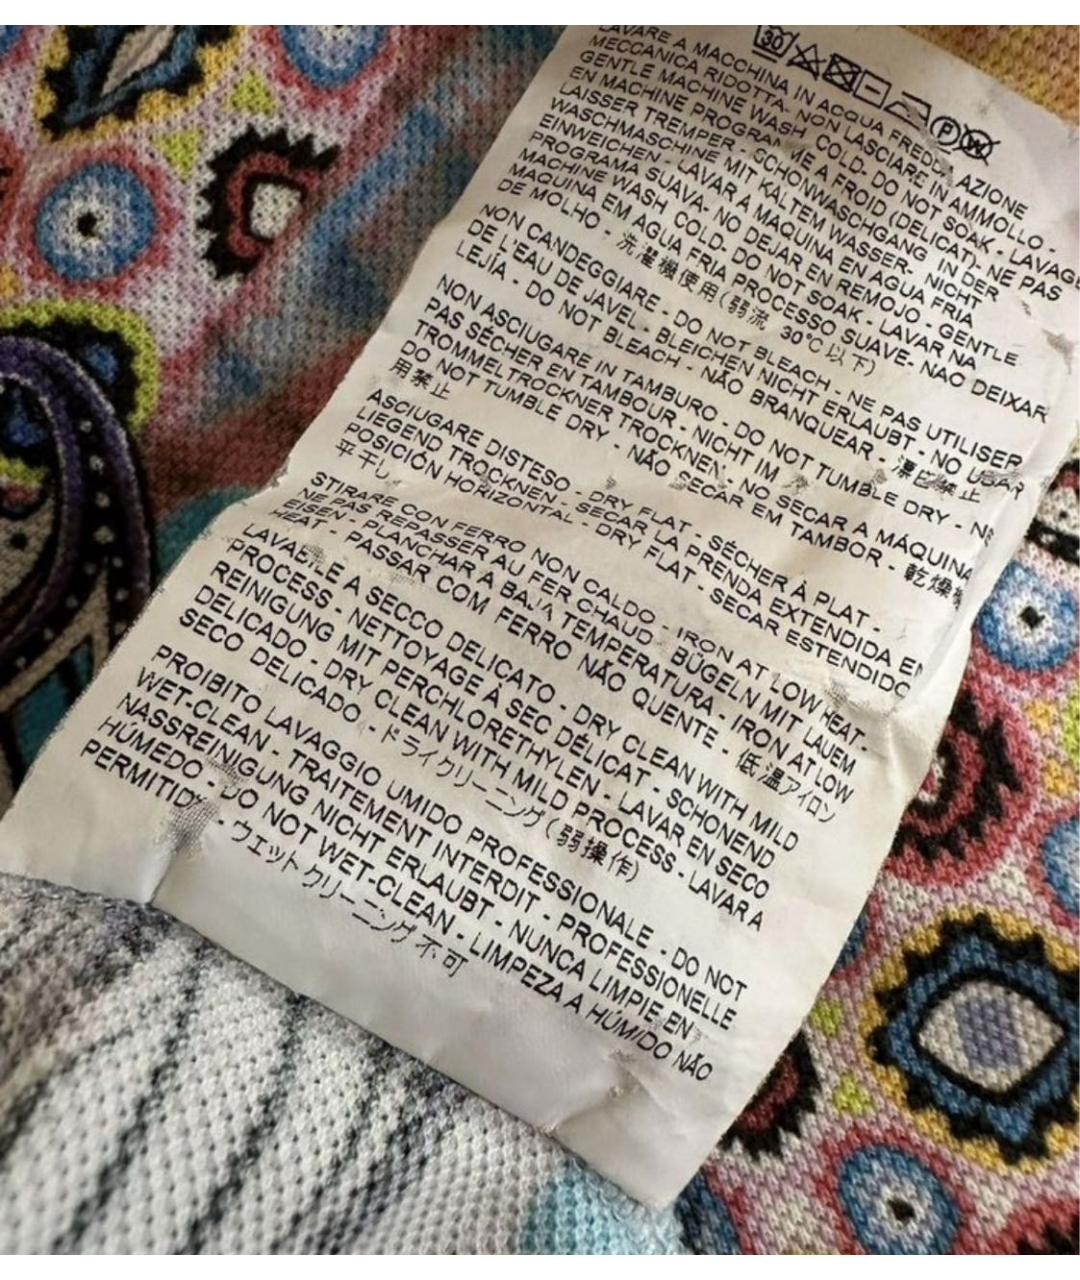 30 P W
LAVARE A MACCHINA IN ACQUA FREDDA AZIONE
MECCANICA RIDOTTA- NON LASCIARE IN AMMOLLO -
GENTLE MACHINE WASH COLD- DO NOT SOAK - LAVAGE
EN MACHINE PROGRAMME A FROID (DELICAT)- NE PAS
LAISSER TREMPER - SCHONWASCHGANG IN DER
WASCHMASCHINE MIT KALTEM WASSER- NICHT
EINWEICHEN - LAVAR A MÁQUINA EN AGUA FRIA
PROGRAMA SUAVA- NO DEJAR EN REMOJO - GENTLE
MACHINE WASH COLD- DO NOT SOAK - LAVAR NA
MAQUINA EM AGUA FRIA PROCESSO SUAVE- NAO DEIXAR
DE MOLHO - 洗濯機使用(弱流 30°C以下)
NON CANDEGGIARE - DO NOT BLEACH - NE PAS UTILISER
DE L'EAU DE JAVEL - BLEICHEN NICHT ERLAUBT - NO USAR
LEJÍA - DO NOT BLEACH - NÃO BRANQUEAR - 漂白禁止
NON ASCIUGARE IN TAMBURO - DO NOT TUMBLE DRY - NE
PAS SÉCHER EN TAMBOUR - NICHT IM
TROMMELTROCKNER TROCKNEN - NO SECAR A MÁQUINA
DO NOT TUMBLE DRY - NÃO SECAR EM TAMBOR - 乾燥機
用禁止
ASCIUGARE DISTESO - DRY FLAT - SÉCHER À PLAT -
LIEGEND TROCKNEN - SECAR LA PRENDA EXTENDIDA EN
POSICIÓN HORIZONTAL - DRY FLAT - SECAR ESTENDIDO
平干し
STIRARE CON FERRO NON CALDO - IRON AT LOW HEAT-
NE PAS REPASSER AU FER CHAUD - BÜGELN MIT LAUEM
EISEN - PLANCHAR A BAJA TEMPERATURA - IRON AT LOW
HEAT - PASSAR COM FERRO NÃO QUENTE - 低温アイロン
LAVABILE A SECCO DELICATO - DRY CLEAN WITH MILD
PROCESS - NETTOYAGE À SEC DÉLICAT - SCHONEND
REINIGUNG MIT PERCHLORETHYLEN - LAVAR EN SECO
DELICADO - DRY CLEAN WITH MILD PROCESS - LAVAR A
SECO DELICADO - ドライクリーニング(弱操作)
PROIBITO LAVAGGIO UMIDO PROFESSIONALE - DO NOT
WET-CLEAN - TRAITEMENT INTERDIT - PROFESSIONELLE
NASSREINIGUNG NICHT ERLAUBT - NUNCA LIMPIE EN
HÚMEDO - DO NOT WET-CLEAN - LIMPEZA A HÚMIDO NÃO
PERMITIDA - ウエットクリーニング不可